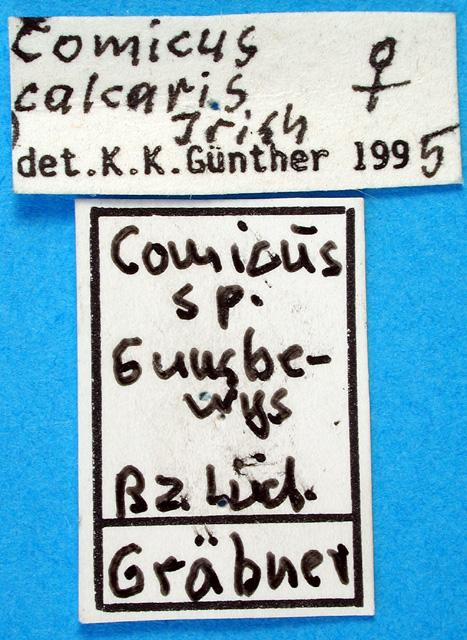 Comicus ♀
calcaris
Irish
det.K.K.Günther 1995
Comicus
sp.
wys
Bz. Lüd.
Gräbner